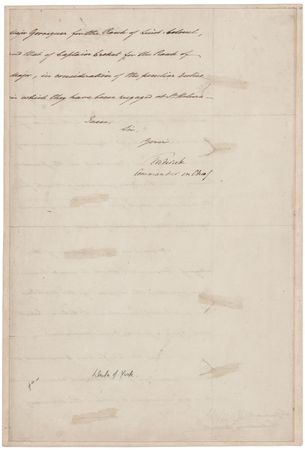 Major Gorrequer for the Rank of Lieut: Colonel,
and that of Captain Croket for the Rank of
Major, in consideration of the peculiar duties
in which they have been engaged at St. Helena.
I am,
Sir,
Yours
Frederick
Commander in Chief
Duke of York.